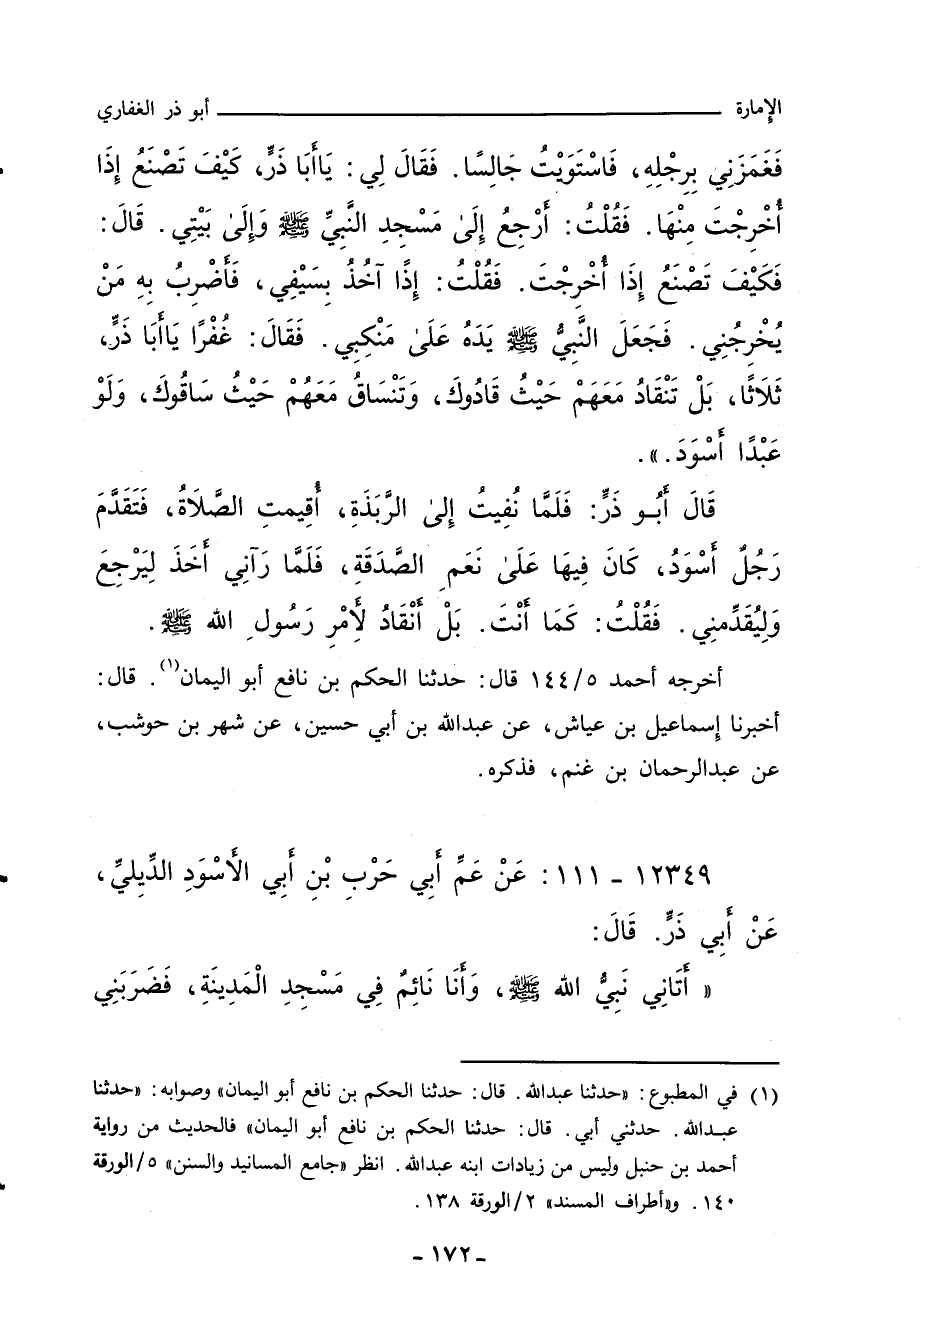 الإمارة ــــــــــــــــــــ أبو ذر الغفاري
فَغَمَزَنِي بِرِجْلِهِ، فَاسْتَوَيْتُ جَالِسًا. فَقَالَ لِي: يَاأَبَا ذَرٍّ، كَيْفَ تَصْنَعُ إِذَا
أُخْرِجْتَ مِنْهَا. فَقُلْتُ: أَرْجِعُ إِلَىٰ مَسْجِدِ النَّبِيِّ ﷺ وَإِلَىٰ بَيْتِي. قَالَ:
فَكَيْفَ تَصْنَعُ إِذَا أُخْرِجْتَ. فَقُلْتُ: إِذًا آخُذُ بِسَيْفِي، فَأَضْرِبُ بِهِ مَنْ
يُخْرِجُنِي. فَجَعَلَ النَّبِيُّ ﷺ يَدَهُ عَلَىٰ مَنْكِبِي. فَقَالَ: غُفْرًا يَاأَبَا ذَرٍّ،
ثَلَاثًا، بَلْ تَنْقَادُ مَعَهُمْ حَيْثُ قَادُوكَ، وَتَنْسَاقُ مَعَهُمْ حَيْثُ سَاقُوكَ، وَلَوْ
عَبْدًا أَسْوَدَ.».
قَالَ أَبُو ذَرٍّ: فَلَمَّا نُفِيتُ إِلىٰ الرَّبَذَةِ، أُقِيمتِ الصَّلَاةُ، فَتَقَدَّمَ
رَجُلٌ أَسْوَدُ، كَانَ فِيهَا عَلَىٰ نَعَمِ الصَّدَقَةِ، فَلَمَّا رَآنِي أَخَذَ لِيَرْجِعَ
وَلِيُقَدِّمنِي. فَقُلْتُ: كَمَا أَنْتَ. بَلْ أَنْقَادُ لأَمْرِ رَسُولِ الله ﷺ.
أخرجه أحمد ١٤٤/٥ قال: حدثنا الحكم بن نافع أبو اليمان(١). قال:
أخبرنا إسماعيل بن عياش، عن عبدالله بن أبي حسين، عن شهر بن حوشب،
عن عبدالرحمان بن غنم، فذكره.
١٢٣٤٩ - ١١١: عَنْ عَمِّ أَبِي حَرْبِ بْنِ أَبِي الأَسْوَدِ الدِّيلِيِّ،
عَنْ أَبِي ذَرٍّ. قَالَ:
« أَتَانِي نَبِيُّ الله ﷺ، وَأَنَا نَائِمٌ فِي مَسْجِدِ الْمَدِينَةِ، فَضَرَبَنِي
(١) في المطبوع: «حدثنا عبدالله. قال: حدثنا الحكم بن نافع أبو اليمان» وصوابه: «حدثنا
عبدالله. حدثني أبي. قال: حدثنا الحكم بن نافع أبو اليمان» فالحديث من رواية
أحمد بن حنبل وليس من زيادات ابنه عبدالله. انظر «جامع المسانيد والسنن» ٥/الورقة
١٤٠. و«أطراف المسند» ٢/الورقة ١٣٨.
- ١٧٢ -